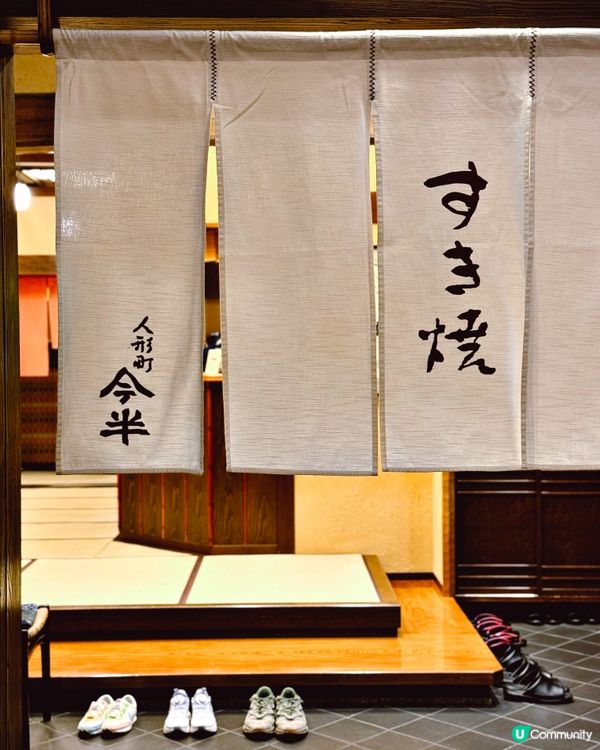 すき焼
人形町
今半
U Community